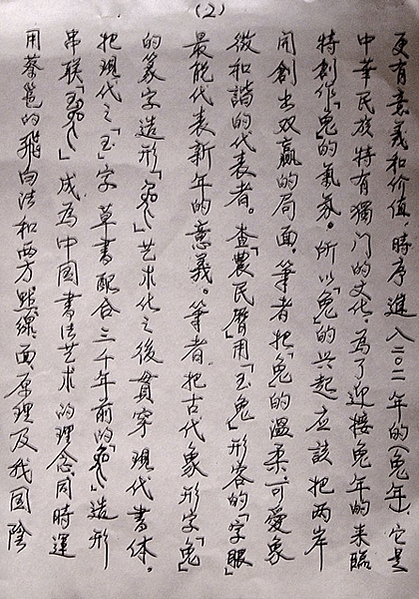 (2)
更有意義和价值。時序進入二〇二年的(兔年)它是
中華民族特有獨门的文化。為了迎接兔年的来臨
特創作「兔」的氣氛。所以「兔」的兴起应該把两岸
開創出双赢的局面。筆者把「兔」的温柔、可爱象
徵和諧的代表者。查「農民曆」用「玉兔」形容的「字眼」
最能代表新年的意義。筆者把古代象形字「兔」
的篆字造形「」艺术化之後貫穿現代書体。
把現代之「玉」字草書配合三千年前的「」造形
串联「」成為中国書法艺术的理念。同時運
用蔡邕的飛白法和西方點、線、面原理及我国陰